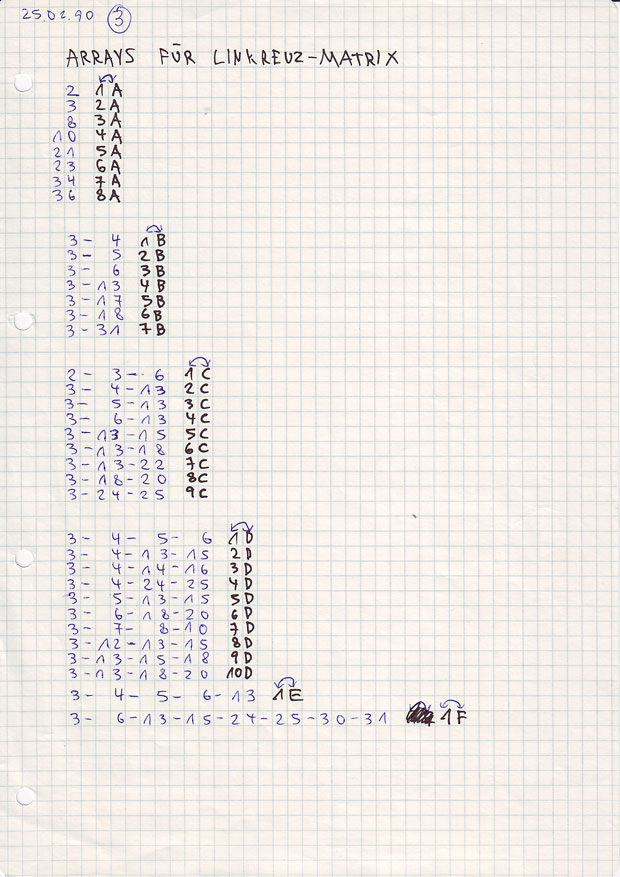 25.02.90 3
ARRAYS FÜR LINKREUZ-MATRIX
2 1A
3 2A
8 3A
10 4A
21 5A
23 6A
34 7A
36 8A
3- 4 1B
3- 5 2B
3- 6 3B
3-13 4B
3-17 5B
3-18 6B
3-31 7B
2- 3- 6 1C
3- 4-13 2C
3- 5-13 3C
3- 6-13 4C
3-13-15 5C
3-13-18 6C
3-13-22 7C
3-18-20 8C
3-24-25 9C
3- 4- 5- 6 1D
3- 4-13-15 2D
3- 4-14-16 3D
3- 4-24-25 4D
3- 5-13-15 5D
3- 6-18-20 6D
3- 7- 8-10 7D
3-12-13-15 8D
3-13-15-18 9D
3-13-18-20 10D
3- 4- 5- 6-13 1E
3- 6-13-15-24-25-30-31 1F